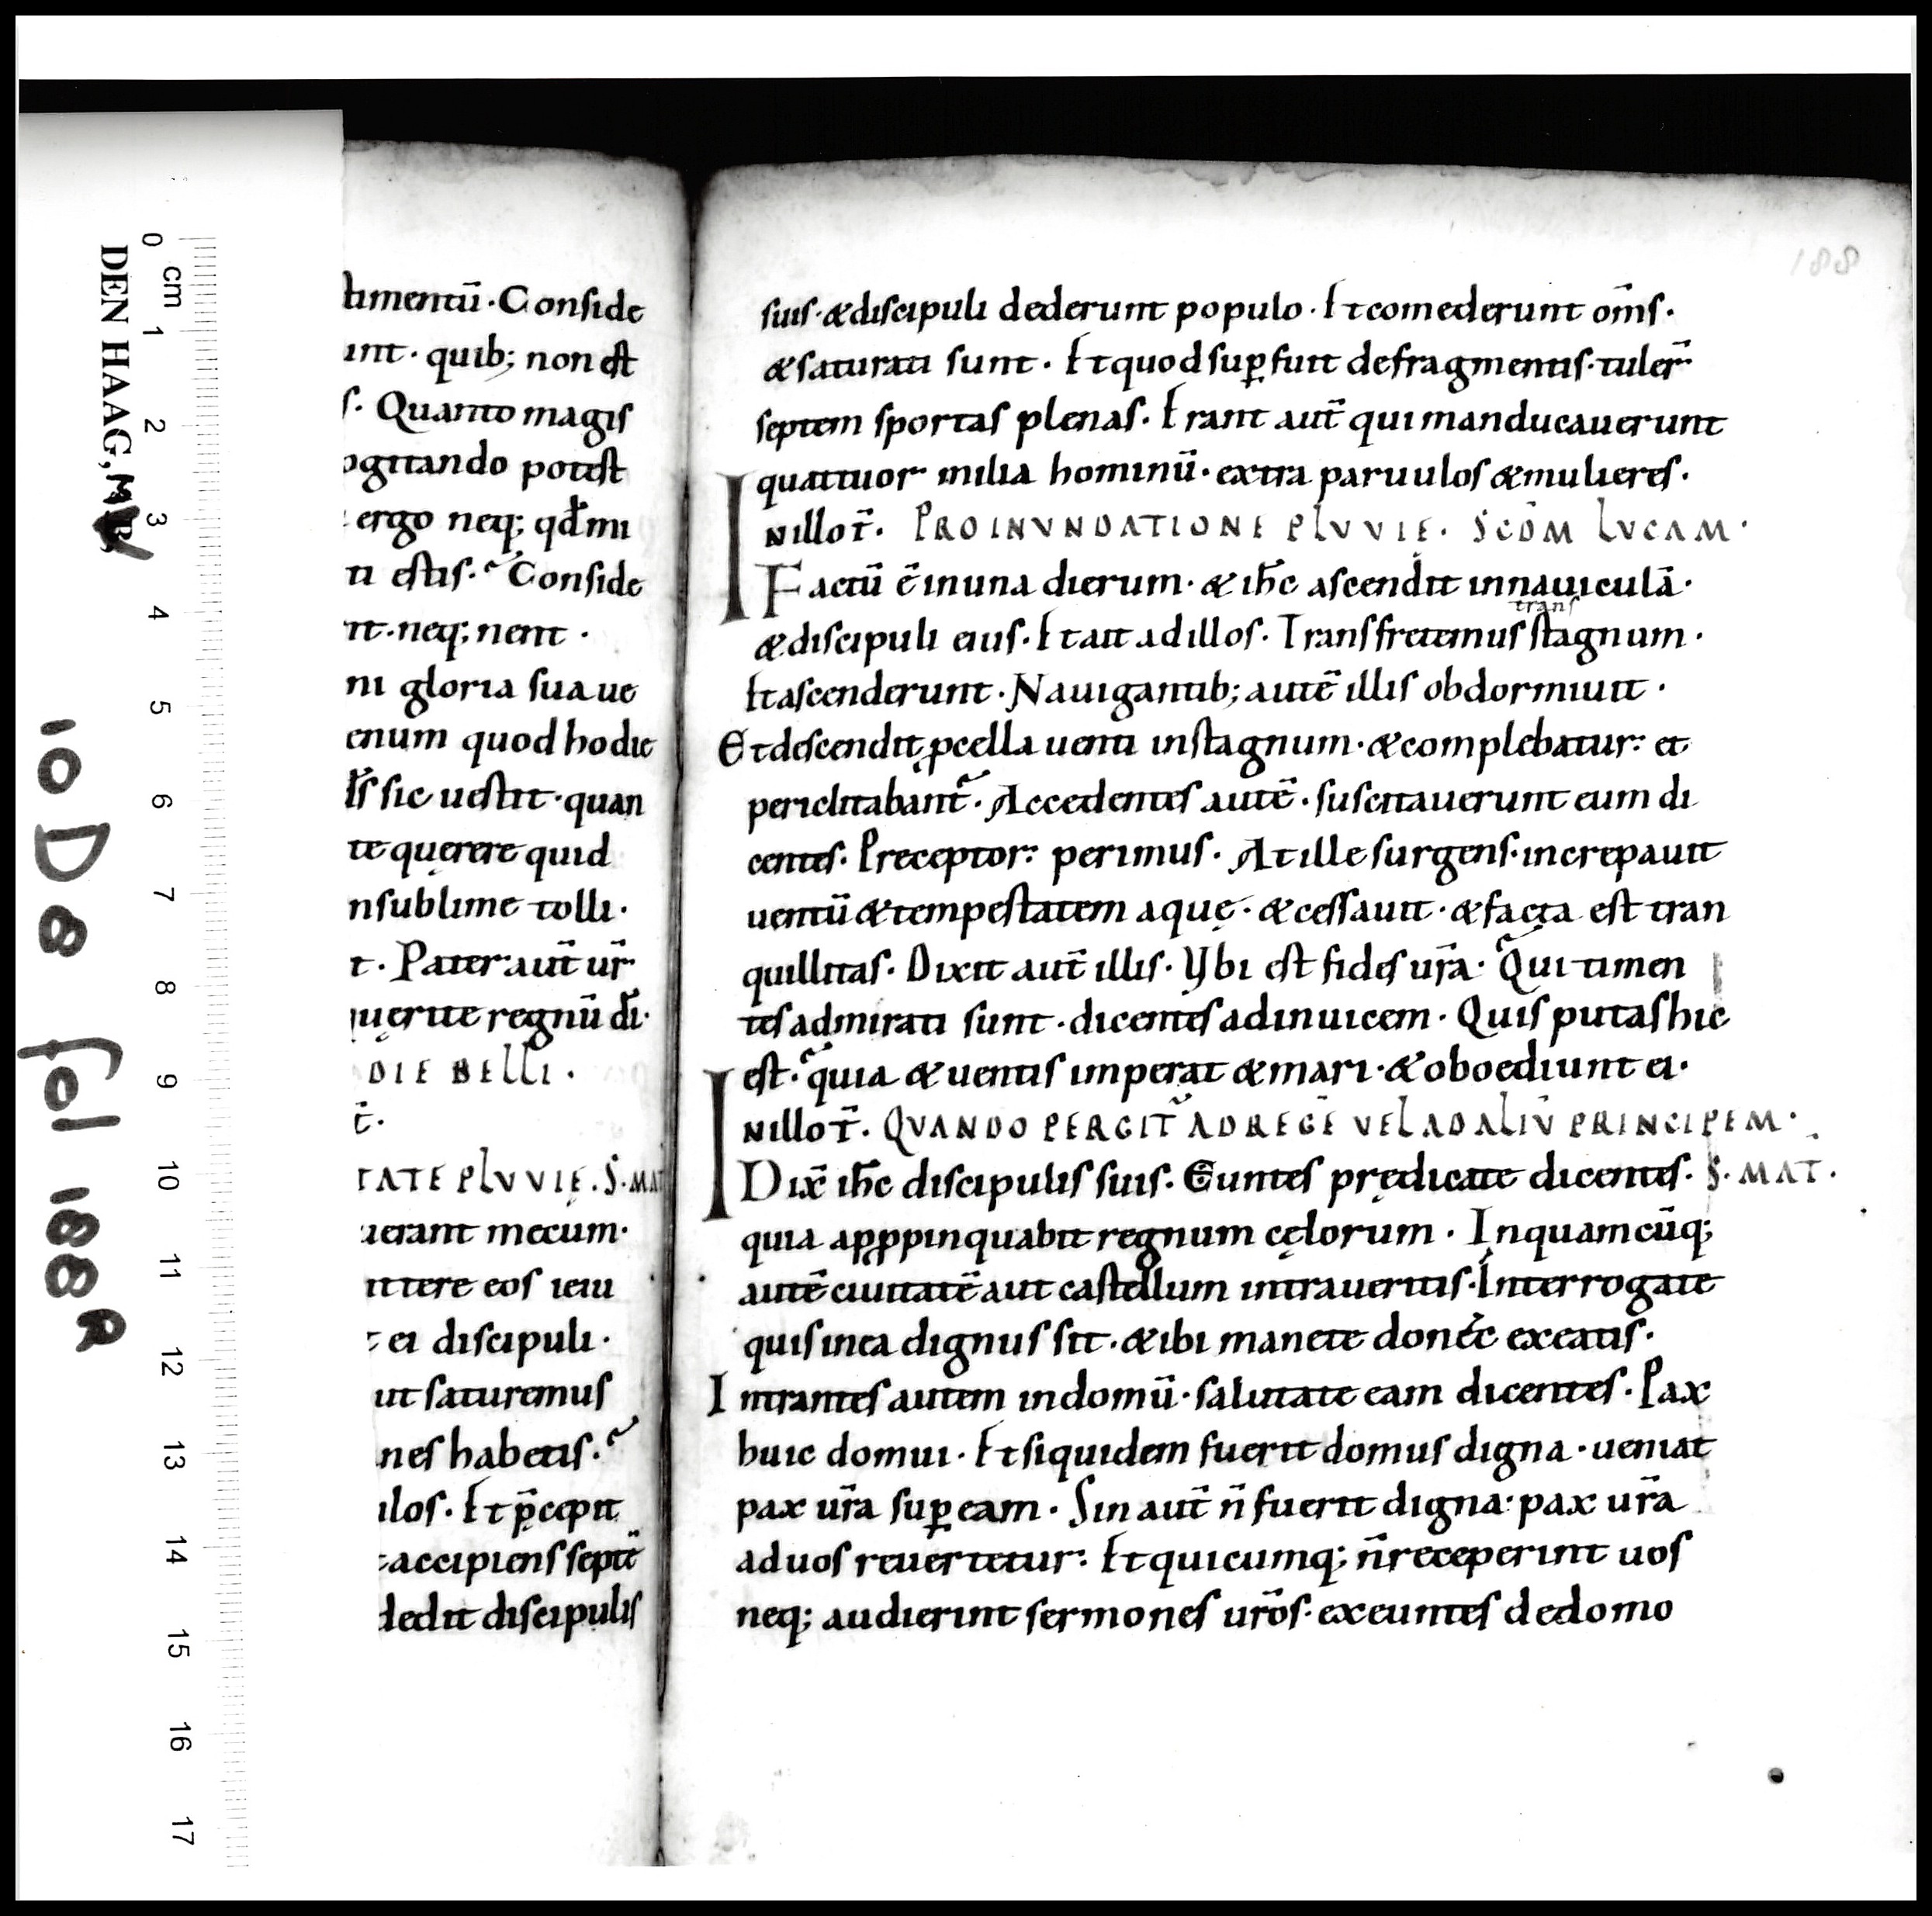 DEN HAAG, MW
0 cm 1 2 3 4 5 6 7 8 9 10 11 12 13 14 15 16 17
10 D 8 fol 188R
188
timentū · Conside
unt · quib; non est
s. Quanto magis
ogitando potest
ergo neq; qđ mi
ti estis. Conside
nt. neq; nent ·
ni gloria sua ue
enum quod hodie
đs sic uestit · quan
te quęrere quid
nsublime tolli ·
t. Pater aut̄ ur̄
quęrite regnū dī·
DIE BELLI .
t̄.
TATE PLVVIE. S. MAT
uerant mecum·
ittere eos ieiu
t ei discipuli ·
ut saturemus
nes habetis.
ulos. Et p̄cepit
t accipiens septē
dedit discipulis
suis · & discipuli dederunt populo · Et comederunt om̄s ·
& saturati sunt · Et quod sup̱ fuit de fragmentis · tuler̄
septem sportas plenas. Erant aut̄ qui manducauerunt
quattuor milia hominū · extra paruulos & mulieres.
IN illo t̄. PRO INVNDATIONE PLVVIE. SCDM LVCAM ·
Factū ē in una dierum · & ih̄c ascendit in nauiculā ·
& discipuli eius. Et ait ad illos. Transfretemus trans stagnum ·
Et ascenderunt · Nauigantib; autē illis obdormiuit ·
Et descendit ꝓcella uenti in stagnum · & complebatur: et
periclitabant᷑. Accedentes autē · suscitauerunt eum di
centes. Preceptor: perimus. At ille surgens · increpauit
uentū & tempestatem aquę · & cessauit · & facta est tran
quillitas. Dixit aut̄ illis. Ubi est fides ur̄a. Qui timen
tes admirati sunt · dicentes ad inuicem. Quis putas hic
est. quia & uentis imperat & mari · & oboediunt ei.
IN illo t̄. QVANDO PERGIT᷑ AD REGĒ VEL AD ALIV̄ PRINCIPEM ·
Dix̄ ih̄c discipulis suis. Euntes prędicate dicentes. S. MAT.
quia apꝓpinquabit regnum cęlorum. In quamcūq;
autē ciuitatē aut castellum intraueritis · Interrogate
quis in ea dignus sit · & ibi manete donec exeatis.
Intrantes autem in domū · salutate eam dicentes. Pax
huic domui. Et siquidem fuerit domus digna · ueniat
pax ur̄a sup̱ eam. Sin aut̄ n̄ fuerit digna: pax ur̄a
ad uos reuertetur: Et quicumq; n̄ receperint uos
neq; audierint sermones ur̄os · exeuntes de domo